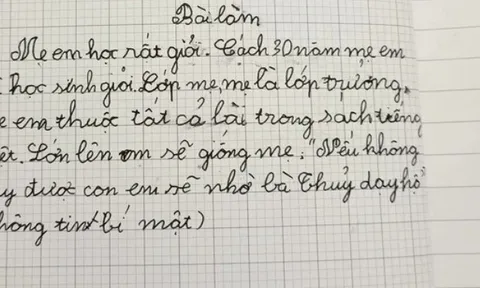 Bài làm
Mẹ em học rất giỏi. Cách 30 năm mẹ em
học sinh giỏi. Lớp mẹ, mẹ là lớp trưởng,
em thuộc tất cả bài trong sach tiếng
Lớn lên em sẽ giống mẹ. "Nếu không
được con em sẽ nhờ bà Thuỷ dạy hộ"
tin bí mật)